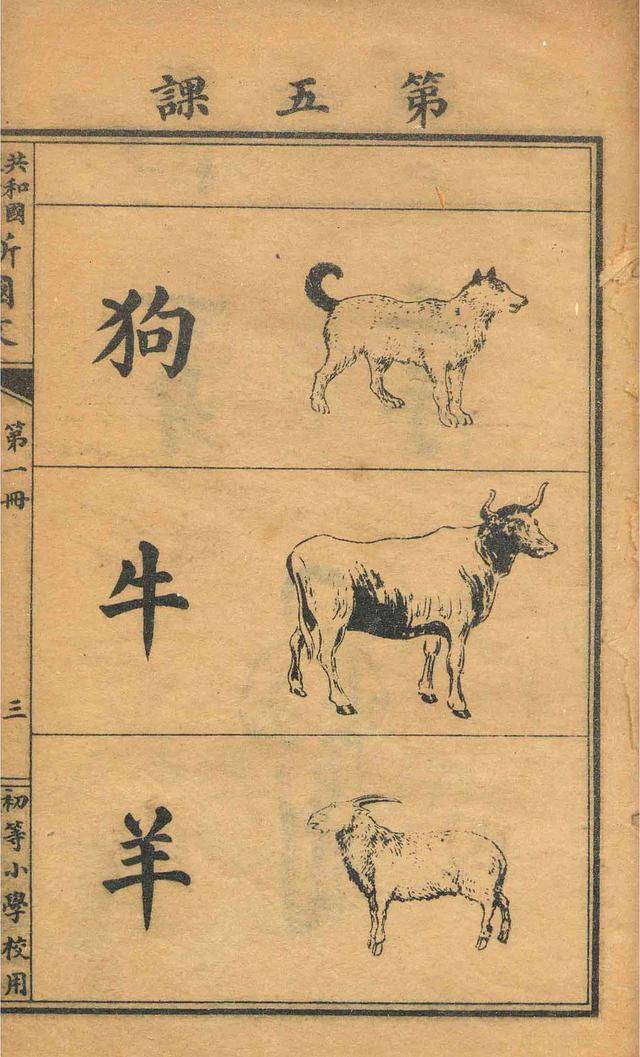 第五課
狗
牛
羊
共和國新國文
第一冊
三
初等小學校用